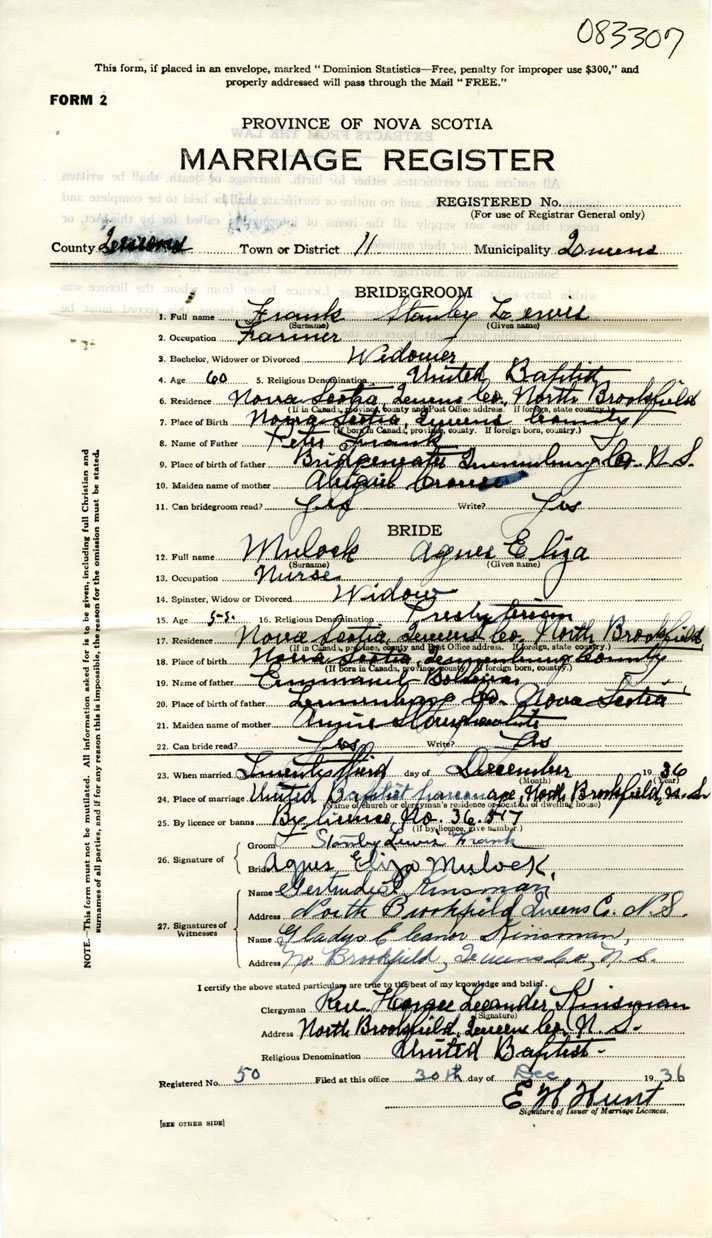 083307
This form, if placed in an envelope, marked "Dominion Statistics—Free, penalty for improper use $300," and
properly addressed will pass through the Mail "FREE."
FORM 2
PROVINCE OF NOVA SCOTIA
MARRIAGE REGISTER
REGISTERED No.
(For use of Registrar General only)
County Queens Town or District 11 Municipality Queens
BRIDEGROOM
1. Full name Frank Stanley Lewis
(Surname) (Given name)
2. Occupation Farmer
3. Bachelor, Widower or Divorced Widower
4. Age 60 5. Religious Denomination United Baptist
6. Residence Nova Scotia, Queens Co. North Brookfield
(If in Canada, province, county and Post Office address. If foreign, state country.)
7. Place of Birth Nova Scotia, Queens County
(If born in Canada, province, county. If foreign born, country.)
8. Name of Father Peter Frank
9. Place of birth of father Bridgewater Lunenburg Co. N.S.
10. Maiden name of mother Abigail Crouse
11. Can bridegroom read? Yes Write? Yes
BRIDE
12. Full name Mulock Agnes Eliza
(Surname) (Given name)
13. Occupation Nurse
14. Spinster, Widow or Divorced Widow
15. Age 55. 16. Religious Denomination Presbyterian
17. Residence Nova Scotia, Queens Co. North Brookfield
(If in Canada, province, county and Post Office address. If foreign, state country.)
18. Place of birth Nova Scotia Lunenburg County
(If born in Canada, province, county. If foreign born, country.)
19. Name of father Emmanuel
20. Place of birth of father Lunenburg Co. Nova Scotia
21. Maiden name of mother Annie
22. Can bride read? Yes Write? Yes
23. When married Twenty third day of December 1936
(Month) (Year)
24. Place of marriage United Baptist parsonage, North Brookfield, N.S.
(Name of church or clergyman's residence or location of dwelling house)
25. By licence or banns By licence, No. 36.517
(If by licence, give number.)
26. Signature of
Groom Stanley Lewis Frank
Bride Agnes Eliza Mulock,
27. Signatures of Witnesses
Name Gertrude Kinsman
Address North Brookfield Queens C. N.S.
Name Gladys Eleanor Kinsman,
Address No. Brookfield, Queens Co., N.S.
I certify the above stated particulars are true to the best of my knowledge and belief.
Clergyman Rev. Horace Leander Kinsman
(Signature)
Address North Brookfield, Queens Co. N.S.
Religious Denomination United Baptist-
Registered No. 50 Filed at this office 30th day of Dec 1936
E H Hunt
Signature of Issuer of Marriage Licences.
[SEE OTHER SIDE]
NOTE.—This form must not be mutilated. All information asked for is to be given, including full Christian and
surnames of all parties, and if for any reason this is impossible, the reason for the omission must be stated.